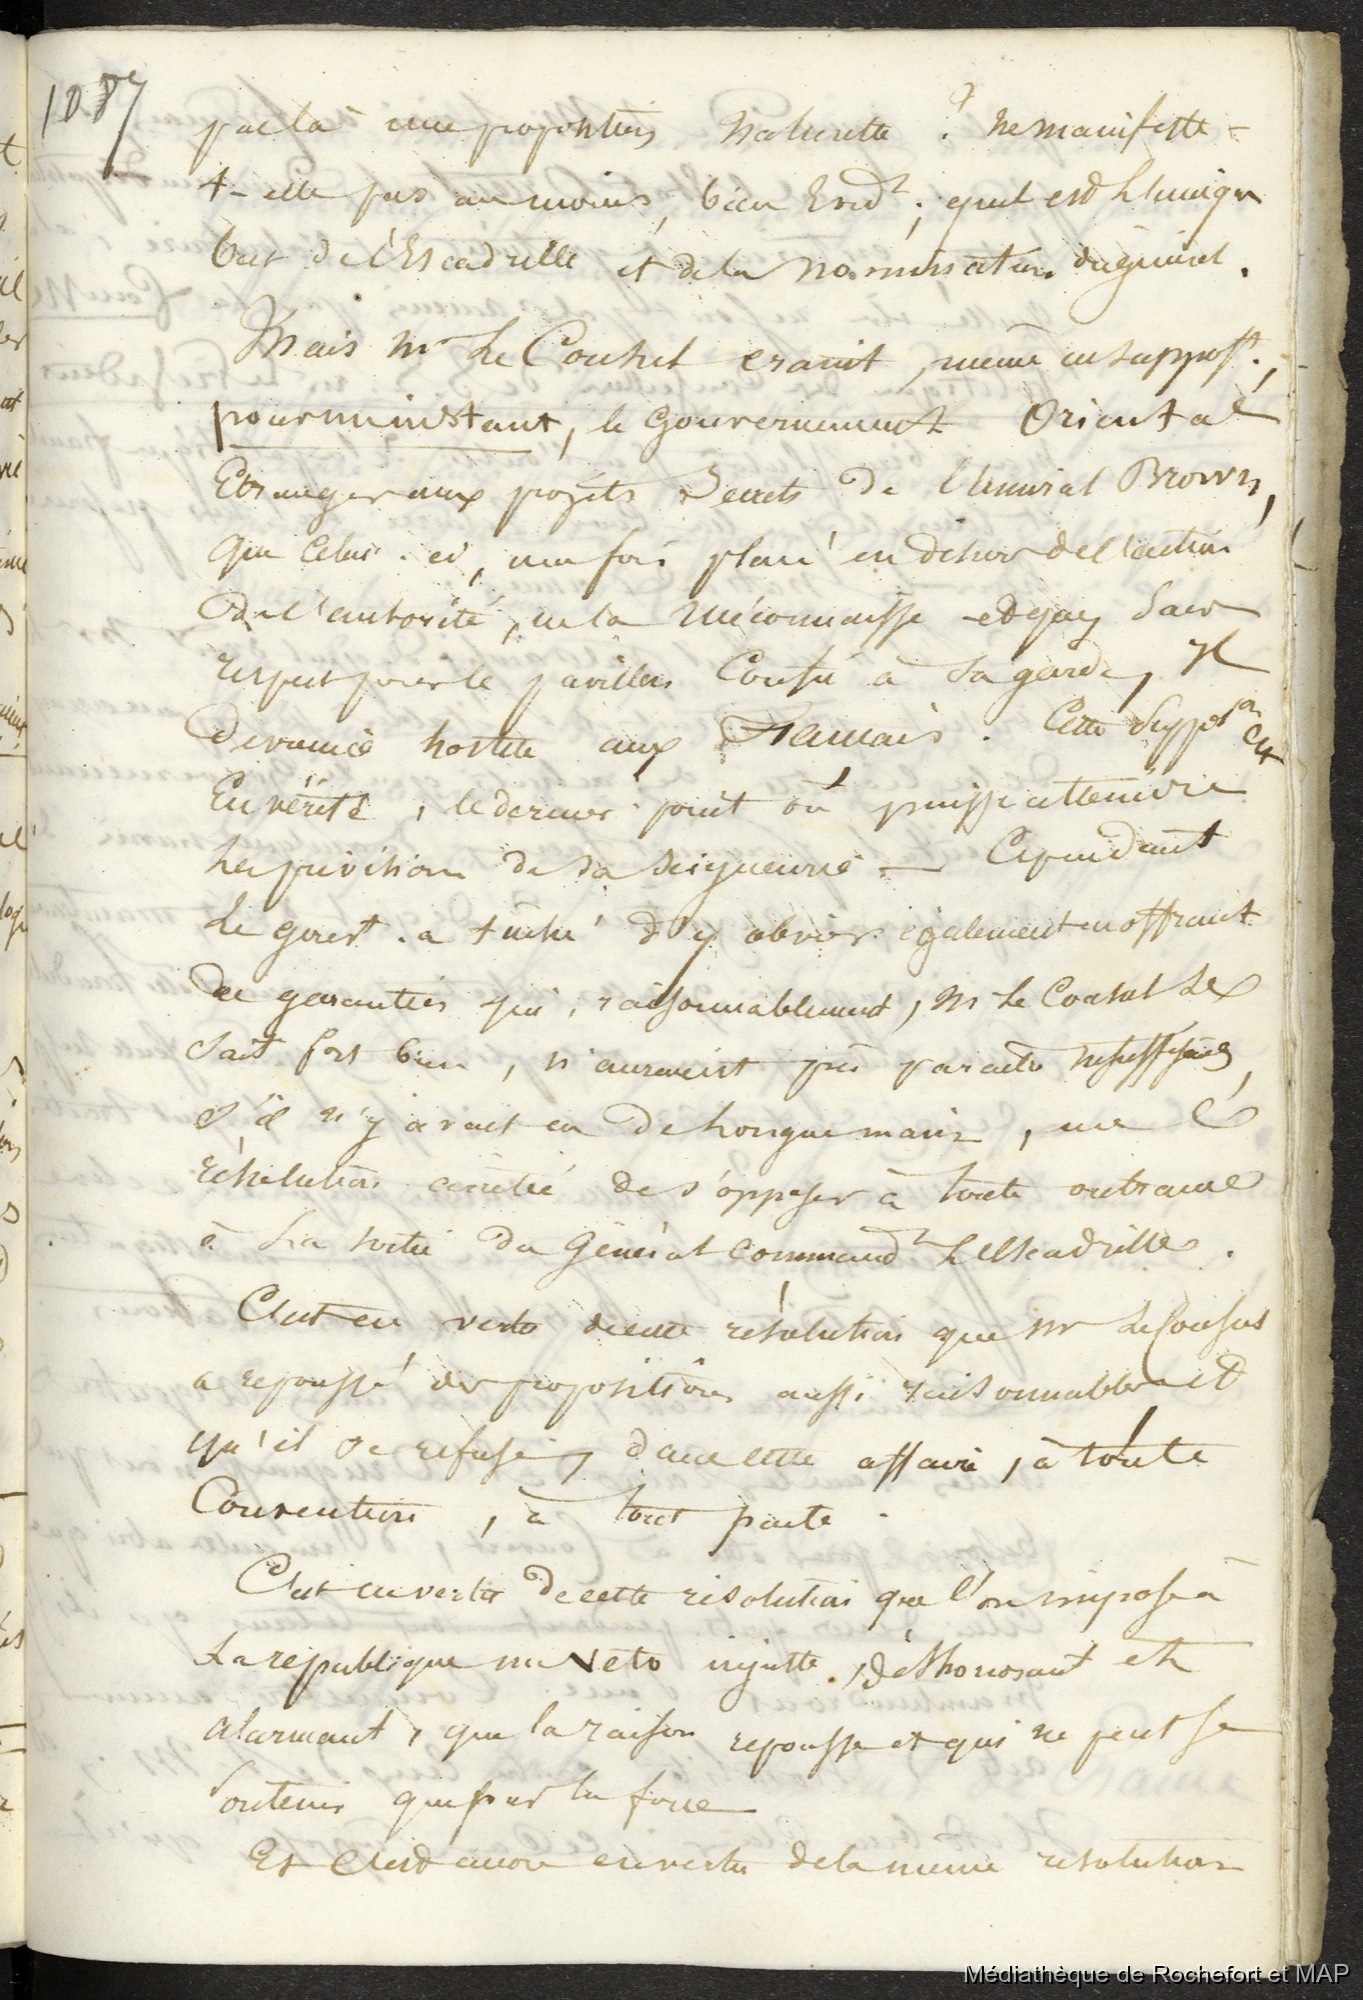 1087
pas là une proposition Naturelle ? ne manifeste-
t-elle pas au moins, bien Evidt, quel est l'unique
but de l'Escadrille et de la nomination du général.
Mais Mr Le Consul craint, même en suppost.,
pour un instant, le Gouvernement Oriental
Etranger aux projets Secrets de l'Amiral Brown,
que celui-ci, une fois placé en dehors de l'action
de l'autorité, ne la méconnaisse et que, sans
respect pour le pavillon Confié à sa garde, il
devienne hostile aux Français. Cette Supposon est
En vérité, le dernier point où puisse atteindre
les prévisions de Sa Seigneurie — Cependant
Le gouvt. a tâché d'y obvier également en offrant
des garanties qui, raisonnablement, Mr Le Consul Le
sait fort bien, n'auraient pu paraître insuffisantes,
s'il n'y avait eu de longue main, une
résolution arrêtée de s'opposer à toute outrance
à La sortie du Général Commandt L'Escadrille.
C'est en vertu de cette résolution que Mr Le Consul
a repoussé des propositions aussi raisonnables et
qu'il se refuse, dans cette affaire, à toute
Convention, à tout pacte.
C'est en vertu de cette résolution que l'on impose à
La république un Veto injuste, déshonorant et
alarmant, que la raison repousse et qui ne peut se
soutenir que par la force
Et C'est encore en vertu de la même résolution
Médiathèque de Rochefort et MAP